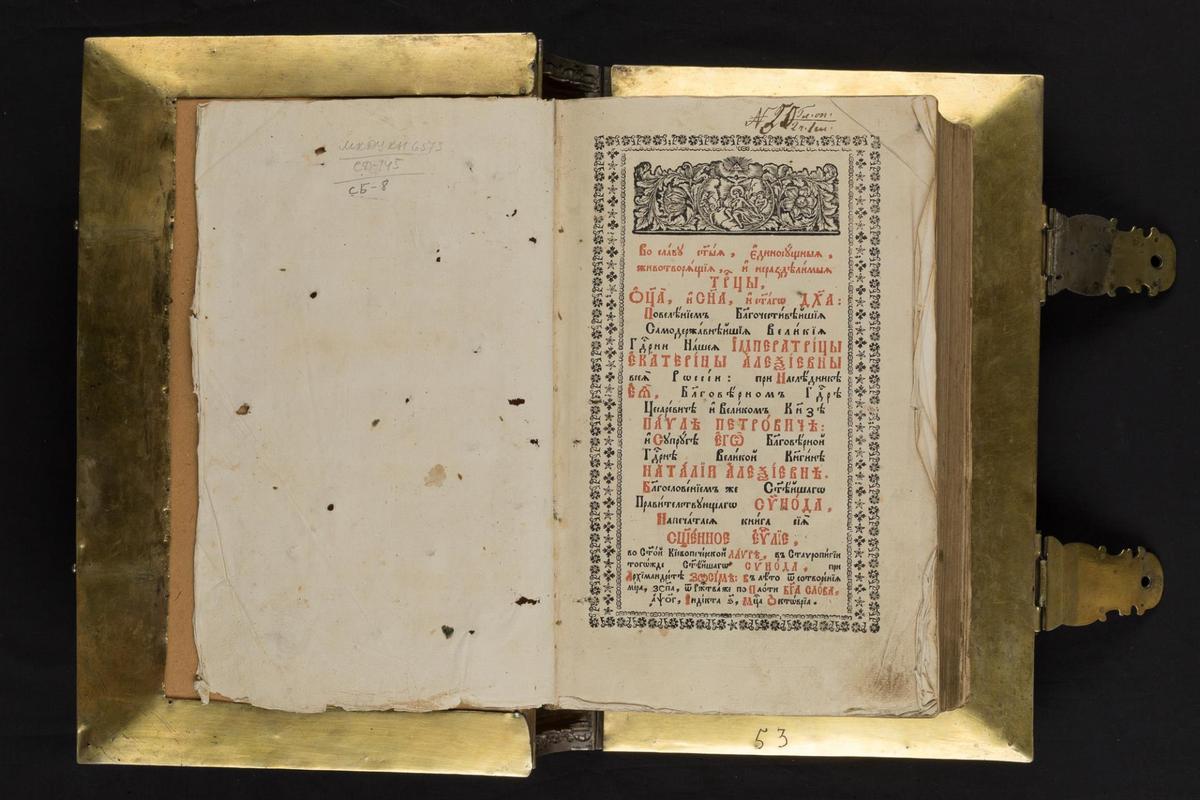 МК ВУ КН 6573
СБ-8
Во сла́ву ст҃ы́ѧ, є҆диносꙋ́щныѧ,
животворѧ́щїѧ, и҆ нераздѣ́лимыѧ
Трⷪ҇цы,
Ѻ҆ц҃а̀, и҆ сн҃а, и҆ ст҃а́гѡ дх҃а:
Повелѣ́нїемъ Бл҃гочести́вѣйшїѧ
Самодержа́внѣйшїѧ Вели́кїѧ
Гдⷭ҇рни На́шеѧ І҆мперат́рїцы
Є҆катері́ны А҆леѯі́евны
всеѧ̀ Рѡссі́и: при Наслѣ́дникѣ
Є҆ѧ̀, Бл҃говѣ́рномъ Гдⷭ҇рѣ
Цесаре́вичѣ и҆ Вели́комъ Кнѧ́зѣ
Па́ѵлѣ Петро́вичѣ:
и҆ Сꙋпрꙋ́гѣ є҆гѡ̀ Бл҃говѣ́рной
Гдⷭ҇рнѣ Вели́кой Кнѧги́нѣ
Ната́лїи А҆леѯі́евнѣ.
Бл҃гослове́нїемъ же Ст҃ѣ́йшагѡ
Прави́телствꙋющагѡ Сѵно́да,
Напеча́тасѧ кни́га сїѧ̀
Сщ҃е́нное є҆ѵⷢ҇лїе,
во Ст҃о́й Кі́евопече́рской ла́ѵрѣ, въ Ставропи́гїи
тогѡ́жде Ст҃ѣ́йшагѡ Сѵно́да, при
Архїмандрі́тѣ Зѡсі́мѣ: въ лѣ́то ѿ сотворе́нїѧ
мі́ра, ҂зспа, ѿ ржⷭ҇тва́ же по пло́ти Бг҃а сло́ва,
҂аѱо́г, і҆ндїкта з҃, мцⷭ҇а Ѻ҆ктѡ́врїа.
53